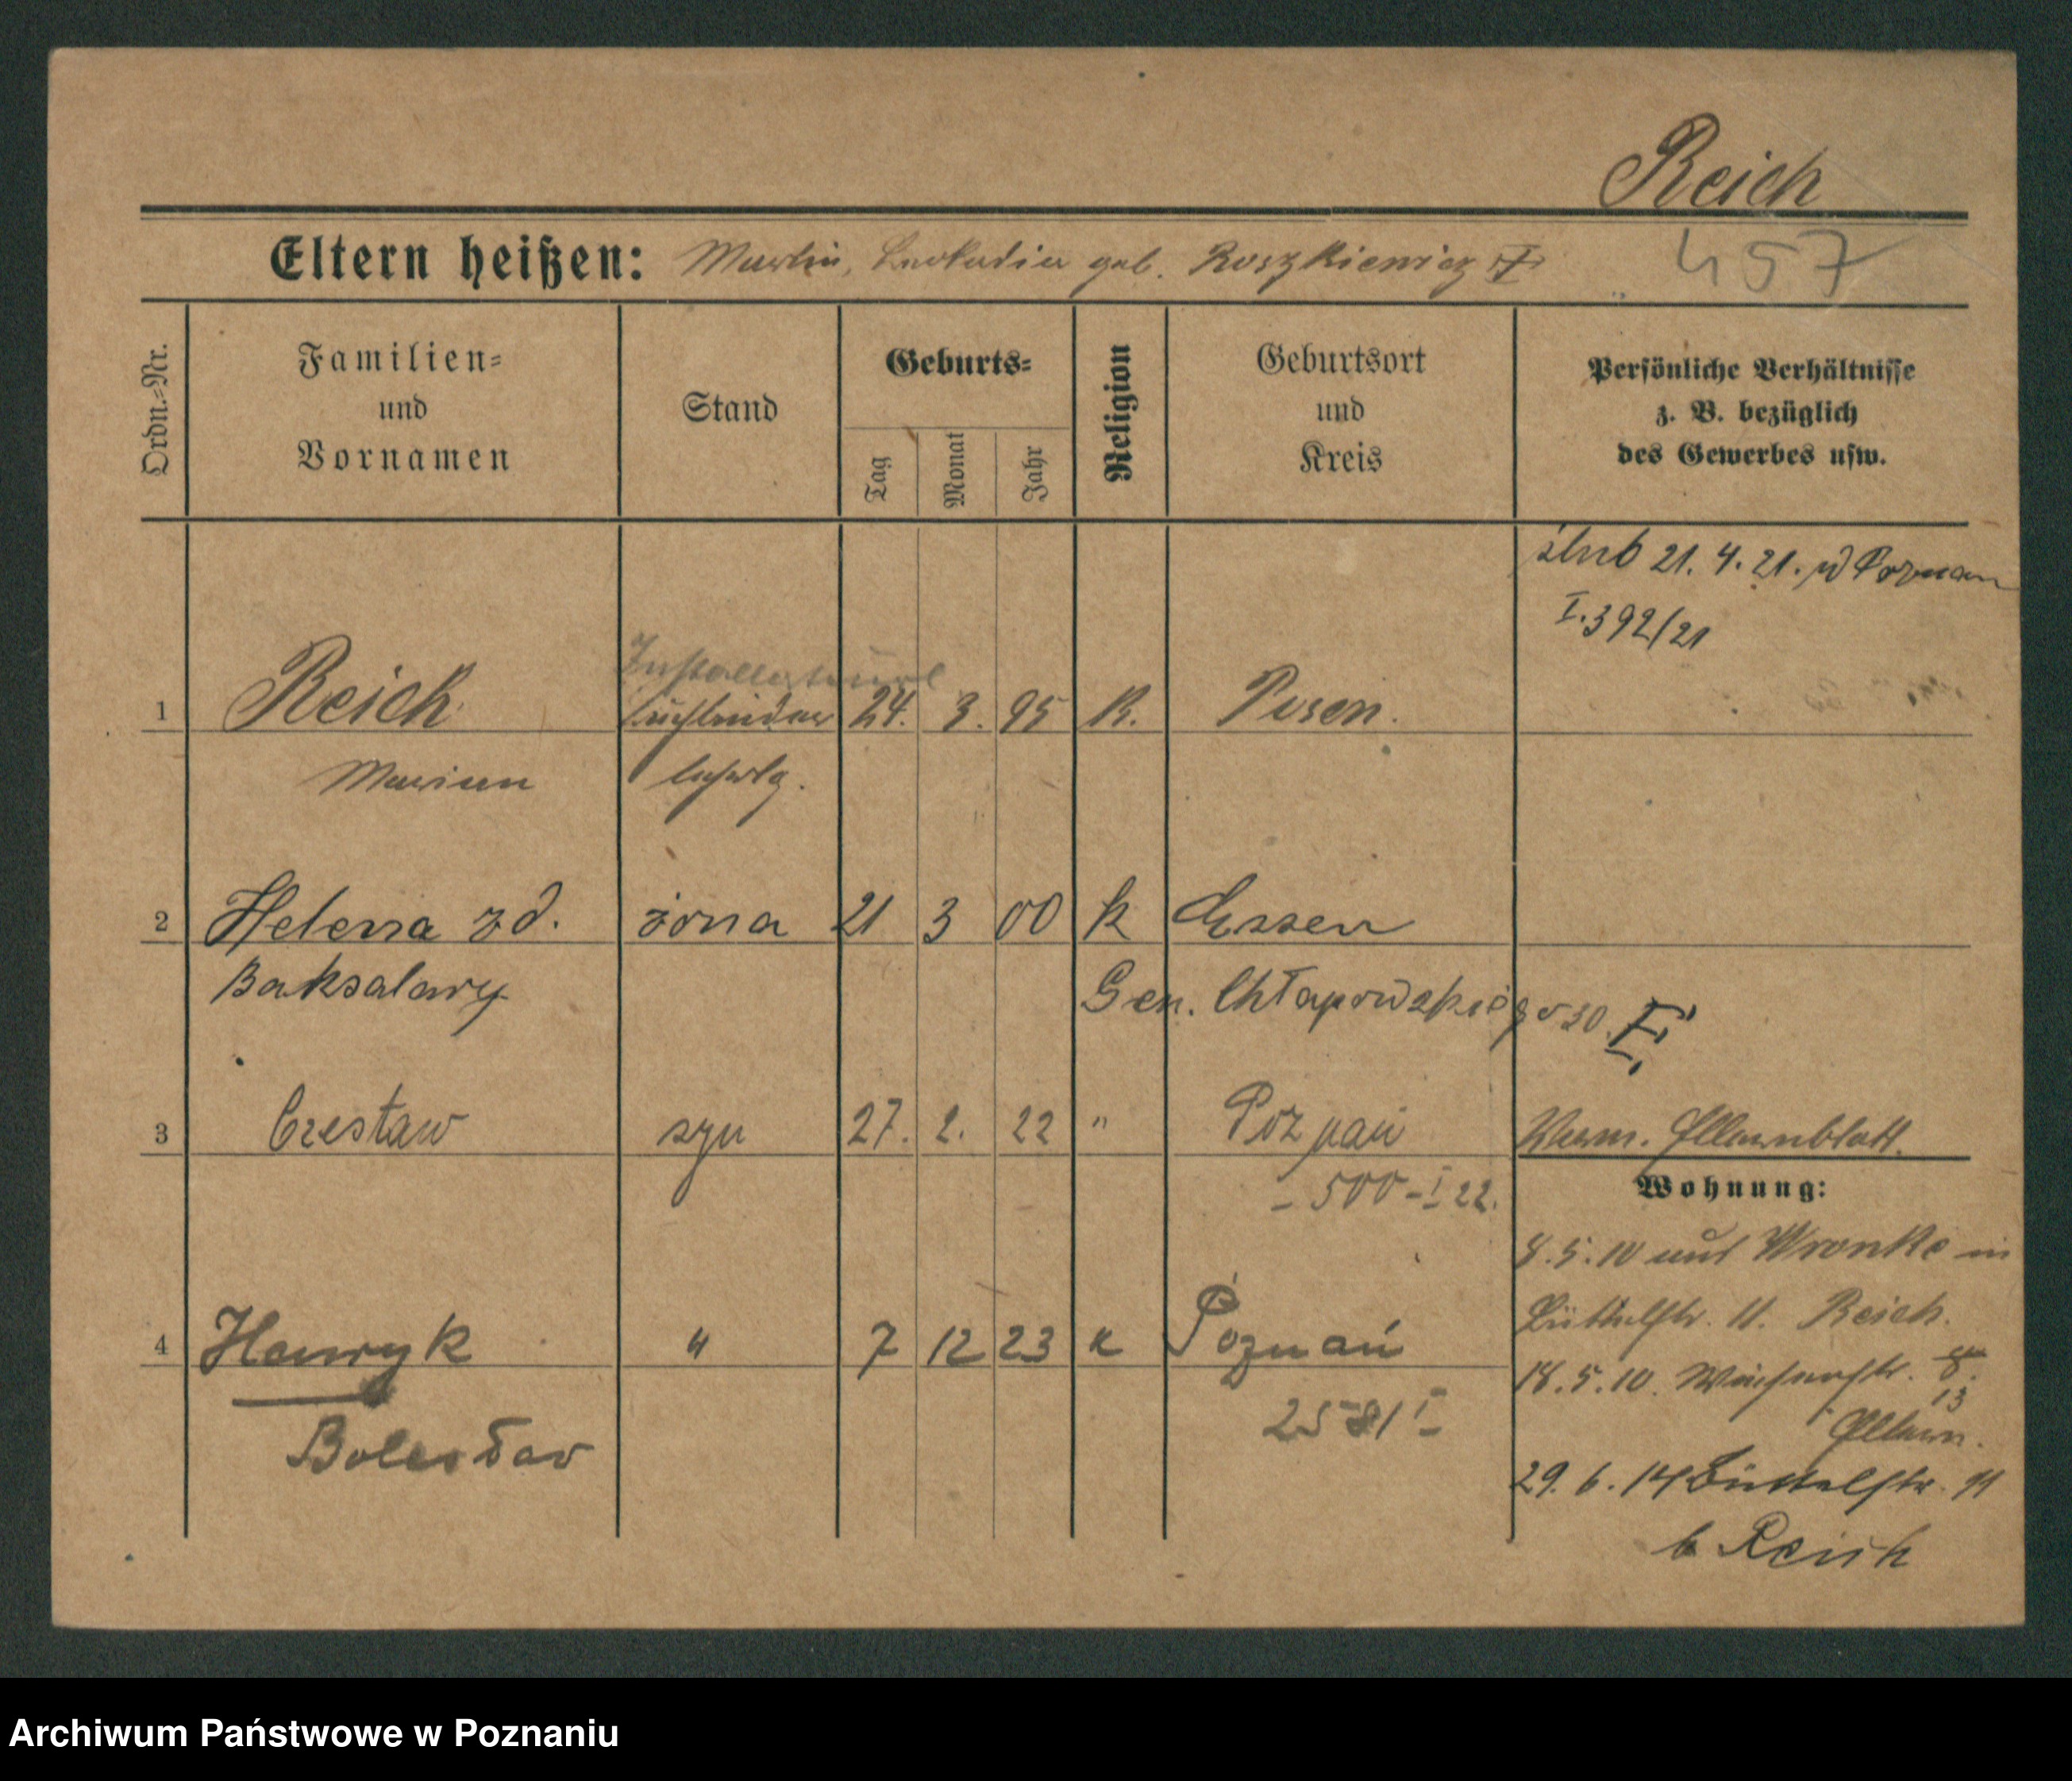 Reich
Eltern heißen: Martin, Leokadia geb. Roszkiewicz
457
Ordn.-Nr.
Familien-
und
Vornamen
Stand
Geburts-
Tag
Monat
Jahr
Religion
Geburtsort
und
Kreis
Persönliche Verhältnisse
z. B. bezüglich
des Gewerbes usw.
ślub 21. 4. 21. w Poznan
I. 392/21
1 Reich 24. 3. 95 K. Posen.
Marian
2 Helena zd. żona 21 3 00 k Essen
Baksalary
Gen. Chłapowskiego 30.
3 Czesław syn 27. 2. 22 " Poznań
Verm. Elternblatt.
- 500 - I 22.
Wohnung:
8. 5. 10 aus Wronke in
Büttelstr. 11. Reich.
4 Henryk " 7 12 23 k Poznań
18. 5. 10.
13
Eltern.
2581 I
Bolesław
29. 6. 14 Büttelstr. 11
b Reich
Archiwum Państwowe w Poznaniu